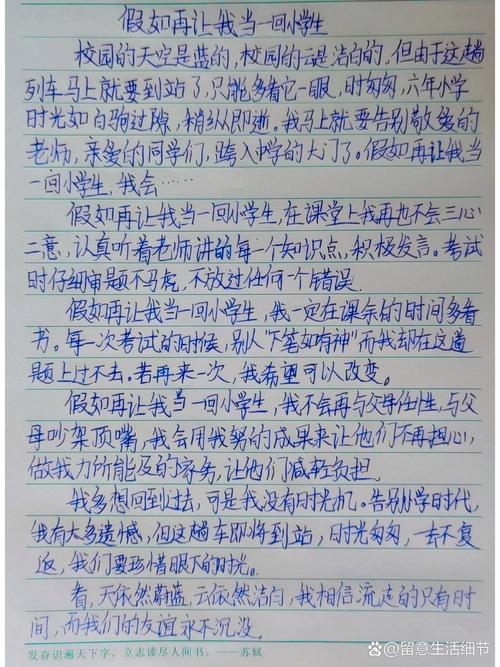 假如再让我当一回小学生
校园的天空是蓝的，校园的云是洁白的，但由于这趟
列车马上就要到站了，只能多看它一眼，时匆匆，六年小学
时光如白驹过隙，稍纵即逝。我马上就要告别敬爱的
老师，亲爱的同学们，跨入中学的大门了。假如再让我当
一回小学生，我会……
假如再让我当一回小学生，在课堂上我再也不会三心
二意，认真听着老师讲的每一个知识点，积极发言。考试
时仔细审题不马虎，不放过任何一个错误.
假如再让我当一回小学生，我一定在课余的时间多看
书。每一次考试的时候，别人“下笔如有神”而我却在这道
题上过不去。若再来一次，我希望可以改变。
假如再让我当一回小学生，我不会再与父母任性，与父
母吵架顶嘴，我会用我努的成果来让他们不再担心，
做我力所能及的家务，让他们减轻负担.
我多想回到过去，可是我没有时光机。告别小学时代，
我有太多遗憾，但这趟车即将到站，时光匆匆，一去不复
返，我们要珍惜眼下的时光。
看，天依然蔚蓝，云依然洁白，我相信流走的只有时
间，而我们的友谊永不沉没。
发奋识遍天下字，立志读尽人间书。——苏轼
@留意生活细节